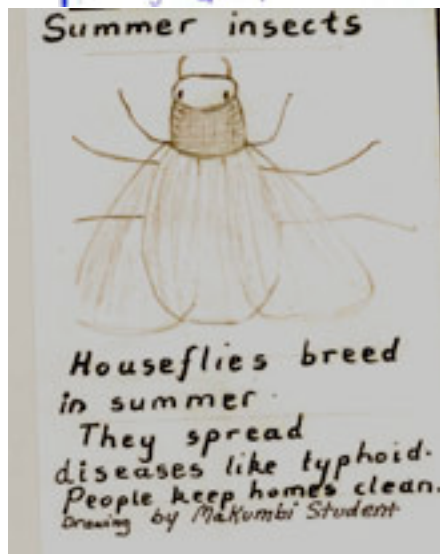 Summer insects
Houseflies breed
in summer.
They spread
diseases like typhoid.
People keep homes clean.
Drawing by Makumbi Student